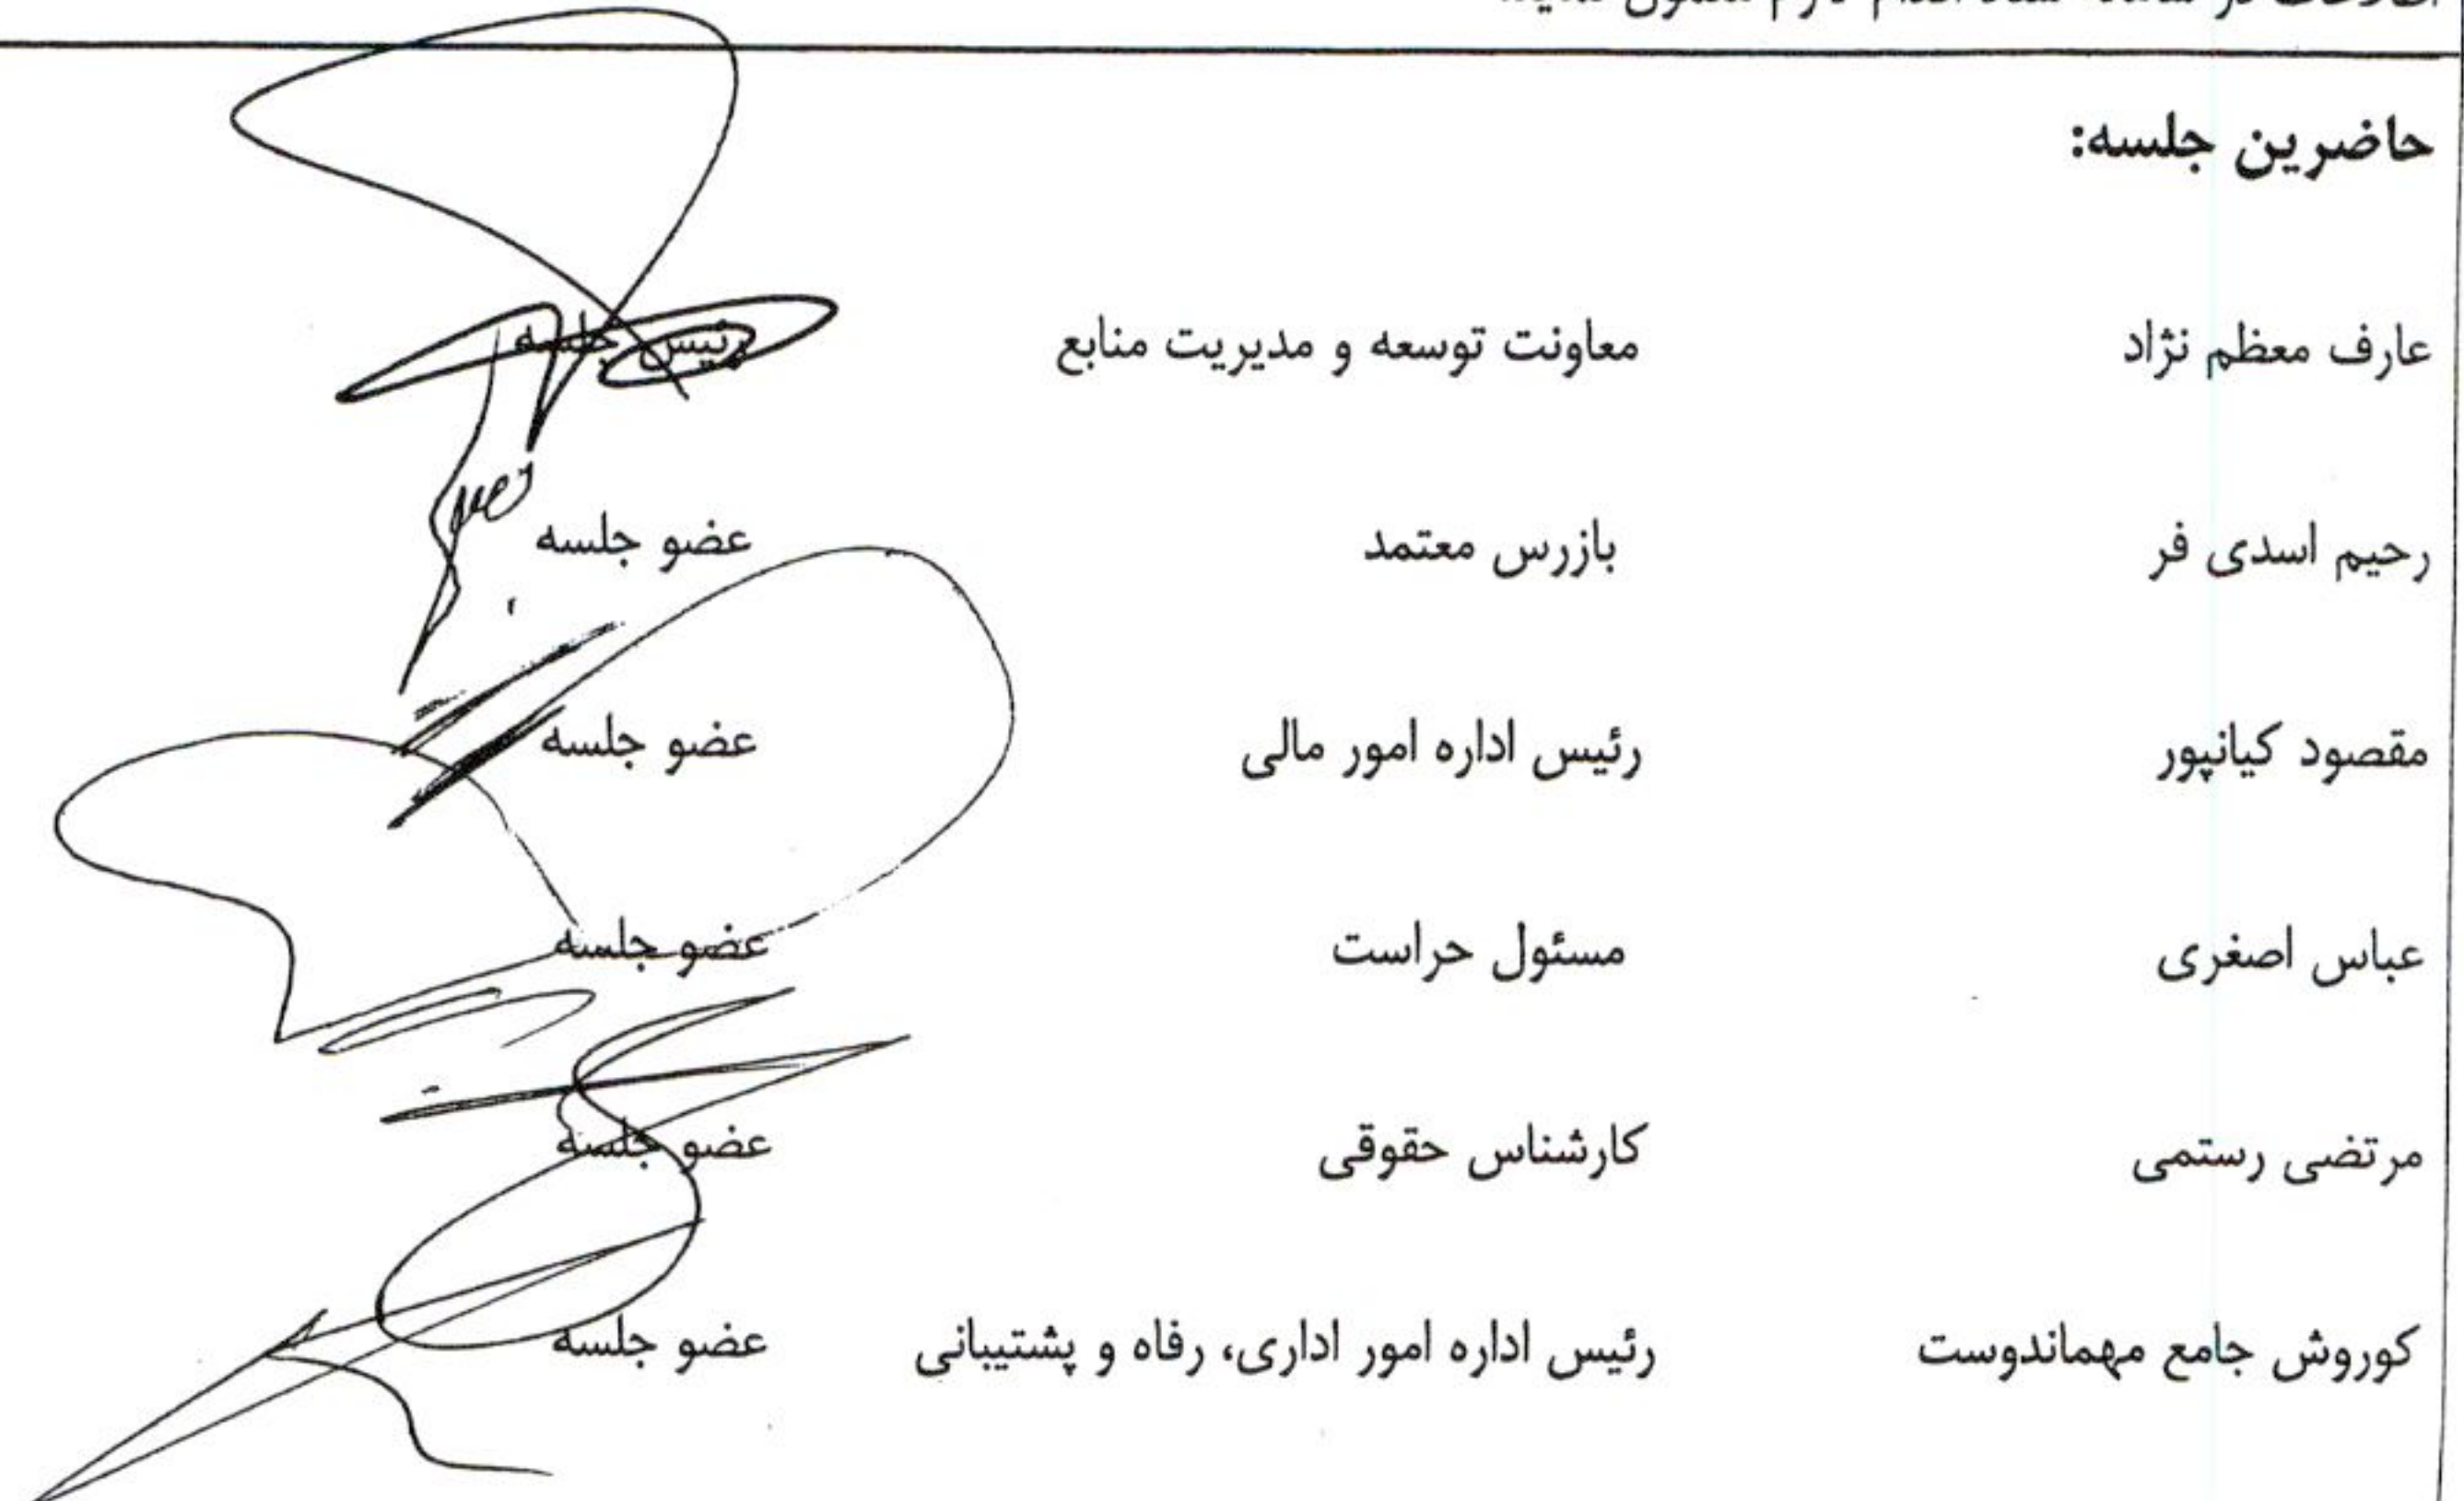 حاضرین جلسه:
عارف معظم نژاد معاونت توسعه و مدیریت منابع رئیس جلسه
رحیم اسدی فر بازرس معتمد عضو جلسه
مقصود کیانپور رئیس اداره امور مالی عضو جلسه
عباس اصغری مسئول حراست عضو جلسه
مرتضی رستمی کارشناس حقوقی عضو جلسه
کوروش جامع مهماندوست رئیس اداره امور اداری، رفاه و پشتیبانی عضو جلسه